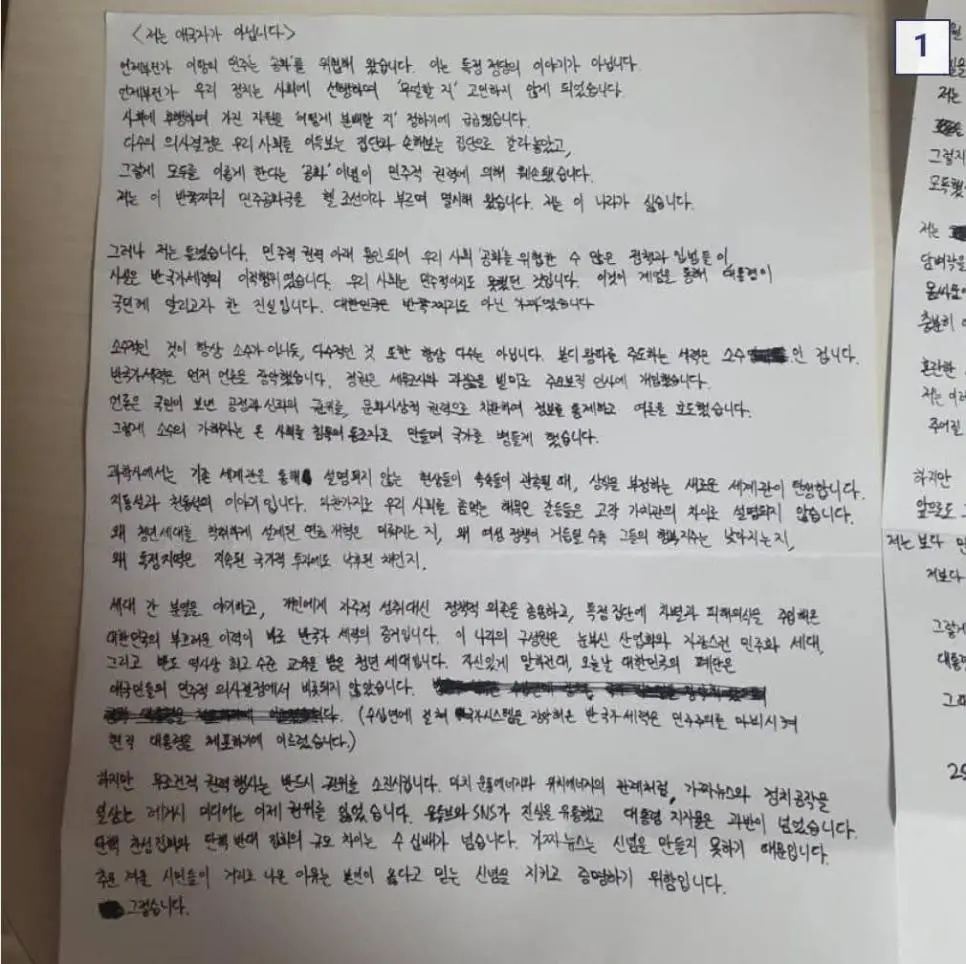 1
<저는 애국자가 아닙니다>
언제부턴가 이땅의 민주는 '공화'를 위협해 왔습니다. 이는 특정 정당의 이야기가 아닙니다.
언제부턴가 우리 정치는 사회에 선행하여 '무엇할 지' 고민하지 않게 되었습니다.
사회에 후행하며 가진 자원을 '어떻게 분배할 지' 정하기에 급급했습니다.
다수의 의사결정은 우리 사회를 이득보는 집단과 손해보는 집단으로 갈라놓았고,
그렇게 모두를 이롭게 한다는 '공화' 이념이 민주적 권력에 의해 훼손됐습니다.
저는 이 반쪽짜리 민주공화국을 헬 조선이라 부르며 멸시해 왔습니다. 저는 이 나라가 싫습니다.
그러나 저는 틀렸습니다. 민주적 권력 아래 용인되어 우리 사회 '공화'를 위협한 수 많은 정책과 입법들이,
사실은 반국가세력의 이적행위였습니다. 우리 사회는 민주적이지도 못했던 것입니다. 이것이 계엄을 통해 대통령이
국민께 알리고자 한 진실입니다. 대한민국은 반쪽짜리도 아닌 가짜였습니다
소수적인 것이 항상 소수가 아니듯, 다수적인 것 또한 항상 다수는 아닙니다. 본디 왈파를 주도하는 세력은 소수 인 겁니다.
반국가세력은 먼저 언론을 장악했습니다. 정권은 세무조사와 과징금을 빌미로 주요보직 인사에 개입했습니다.
언론은 국민이 보낸 공정과 신뢰의 권위를, 문화시상적 권력으로 치환하여 정보를 통제하고 여론을 호도했습니다.
그렇게 소수의 가해자는 온 사회를 침묵의 동조자로 만들며 국가를 병들게 했습니다.
과학사에서는 기존 세계관을 통해 설명되지 않는 현상들이 속속들이 관측될 때, 상식을 부정하는 새로운 세계관이 탄생합니다.
지동설과 천동설의 이야기입니다. 마찬가지로 우리 사회를 좀먹는 해묵은 갈등들은 고작 가치관의 차이로 설명되지 않습니다.
왜 청년세대를 착취하게 설계된 연금 개혁은 미뤄지는 지, 왜 여성 정책이 거듭될 수록 그들의 행복지수는 낮아지는 지,
왜 특정지역은 지속된 국가적 투자에도 낙후된 채인지.
세대 간 분열을 야기하고, 개인에게 자주적 성취 대신 정책적 의존을 종용하고, 특정 집단에 차별과 피해의식을 주입해온
대한민국의 부끄러운 이력이 바로 반국가 세력의 증거입니다. 이 나라의 구성원은 눈부신 산업화와 자랑스런 민주화 세대,
그리고 반도 역사상 최고 수준 교육을 받은 청년 세대입니다. 자신있게 말하건대, 오늘날 대한민국의 폐단은
애국민들의 민주적 의사결정에서 비롯되지 않았습니다.
(수십년에 걸쳐 국가시스템을 장악해온 반국가세력은 민주주의를 마비시켜
현직 대통령을 체포하기에 이르렀습니다.)
하지만 무조건적 권력행사는 반드시 권위를 소진시킵니다. 마치 운동에너지와 위치에너지의 관계처럼, 가짜뉴스와 정치공작을
일삼는 레거시 미디어는 이제 권위를 잃었습니다. 유튜브와 SNS가 진실을 유통했고 대통령 지지율은 과반이 넘었습니다.
탄핵 찬성집회와 탄핵 반대 집회의 규모 차이는 수 십배가 넘습니다. 가짜 뉴스는 신념을 만들지 못하기 때문입니다.
추운 겨울 시민들이 거리로 나온 이유는 본연이 옳다고 믿는 신념을 지키고 증명하기 위함입니다.
그렇습니다.
저는
그렇지
모독했
저는
담벼락을
몸싸움에
충분히
혼란한
저는 이러
주어질
하지만
앞으로도
저는 보다 민
저보다
그렇게
대통령
그때